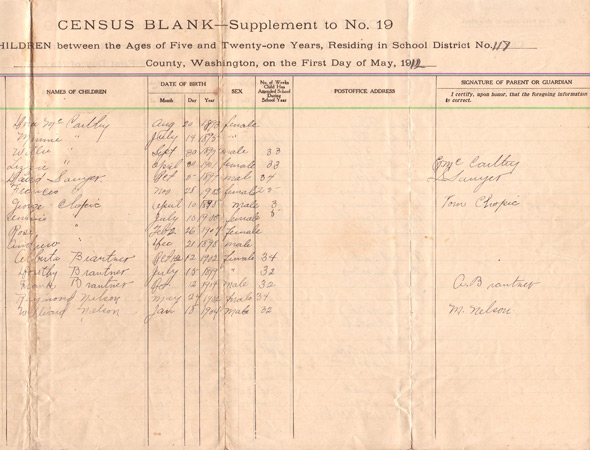 CENSUS BLANK—Supplement to No. 19
HILDREN between the Ages of Five and Twenty-one Years, Residing in School District No. 117
County, Washington, on the First Day of May, 191
NAMES OF CHILDREN DATE OF BIRTH SEX No. of Weeks Child Has Attended School During School Year POSTOFFICE ADDRESS SIGNATURE OF PARENT OR GUARDIAN
Month Day Year I certify, upon honor, that the foregoing information is correct.
Mc Cathey Aug 20 1893 female
Minnie " July 14 1895 "
Willie " Sept 20 189 male 33
" April 1901 female 33 Mc Cathey
Sawyer Oct 5 1897 male 34 Sawyer
Frances " Nov 28 female
George Chopic April 10 1895 male 3 Tom Chopic
July 10 1900 female 5
Rose Feb 26 190 female
Andrew Dec 21 1898 male
Alberta Brantner Oct 12 1902 female 34
Dorothy Brantner July 15 1899 " 32
Frank Brantner Oct 12 1904 male 32 Brantner
Raymond Nelson May 24 190 male 34
Edward Nelson Jan 15 1904 male 32 M. Nelson